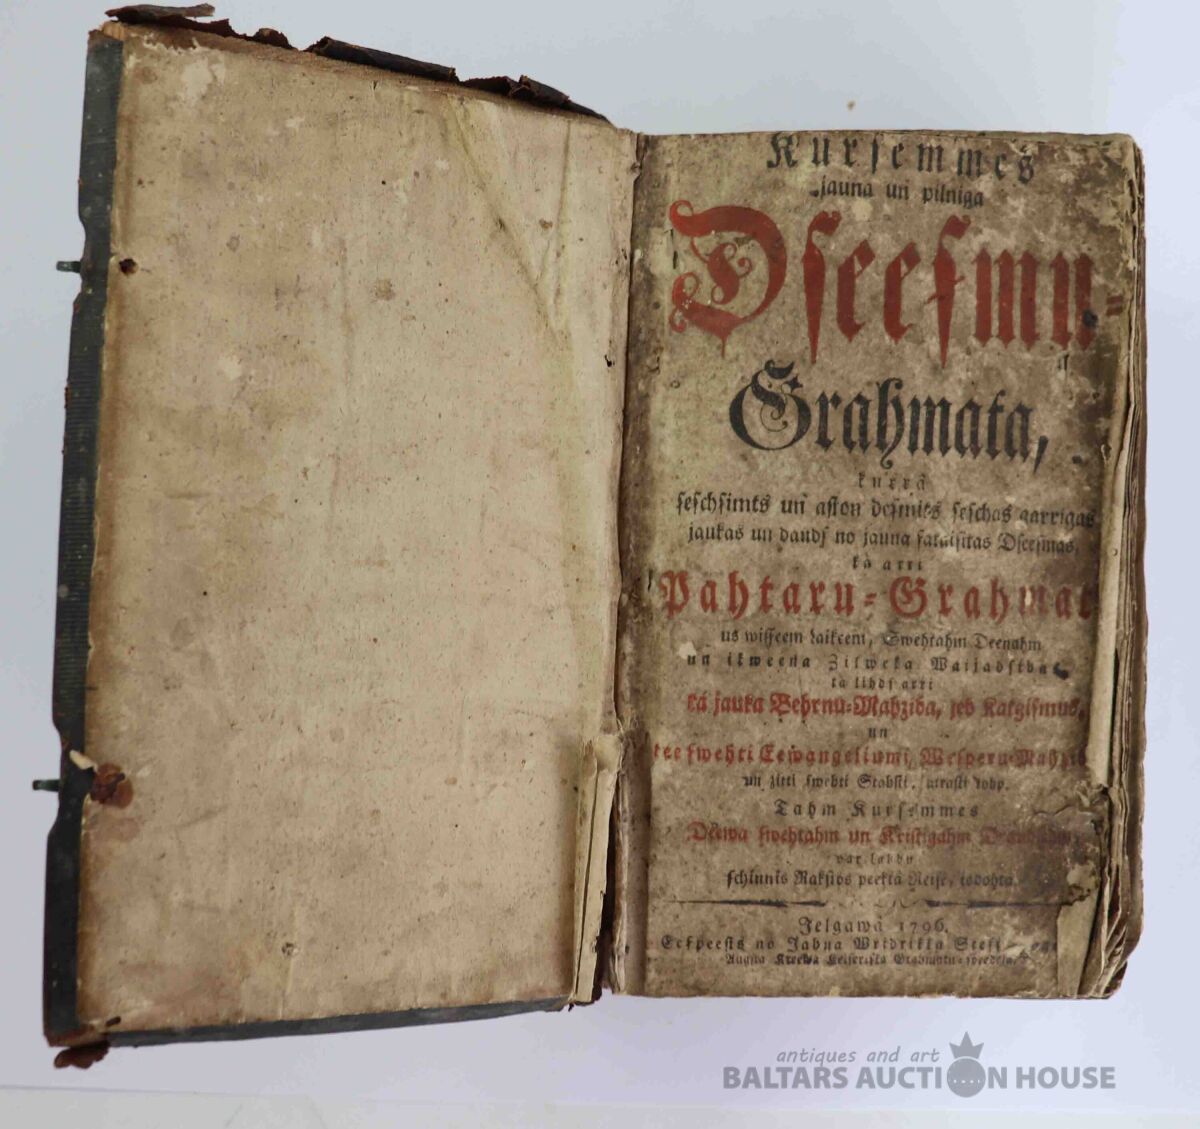 Kursemmes
jauna un pilniga
Dseesmu-
Grahmata,
kurrâ
seschsimts un aston desmits seschas garrigas
jaukas un daudf no jauna sataisitas Dseesmas,
kâ arri
Pahtaru-Grahmat
us wisseem laikeem, Swehtahm Deenahm
un ikweena Zilweka Waijadsibas
tâ lihds arri
tâ jauka Behrnu-Mahziba, jeb Katgismus,
un
tee swehti Eewangeliumi, Wesperu-Mahzib
un zitti swehti Stahsti, atrasti tohp.
Tahm Kursemmes
Deewa swehtahm un Kristigahm
par labbu
schinnîs Rakstos peektâ Reise, isdohta.
Jelgawâ 1796,
Eespeests no Jahna Wridrikka Steff
Augsta Kreewu Keiseriska Grahmatu-speedeja.
antiques and art
BALTARS AUCTION HOUSE